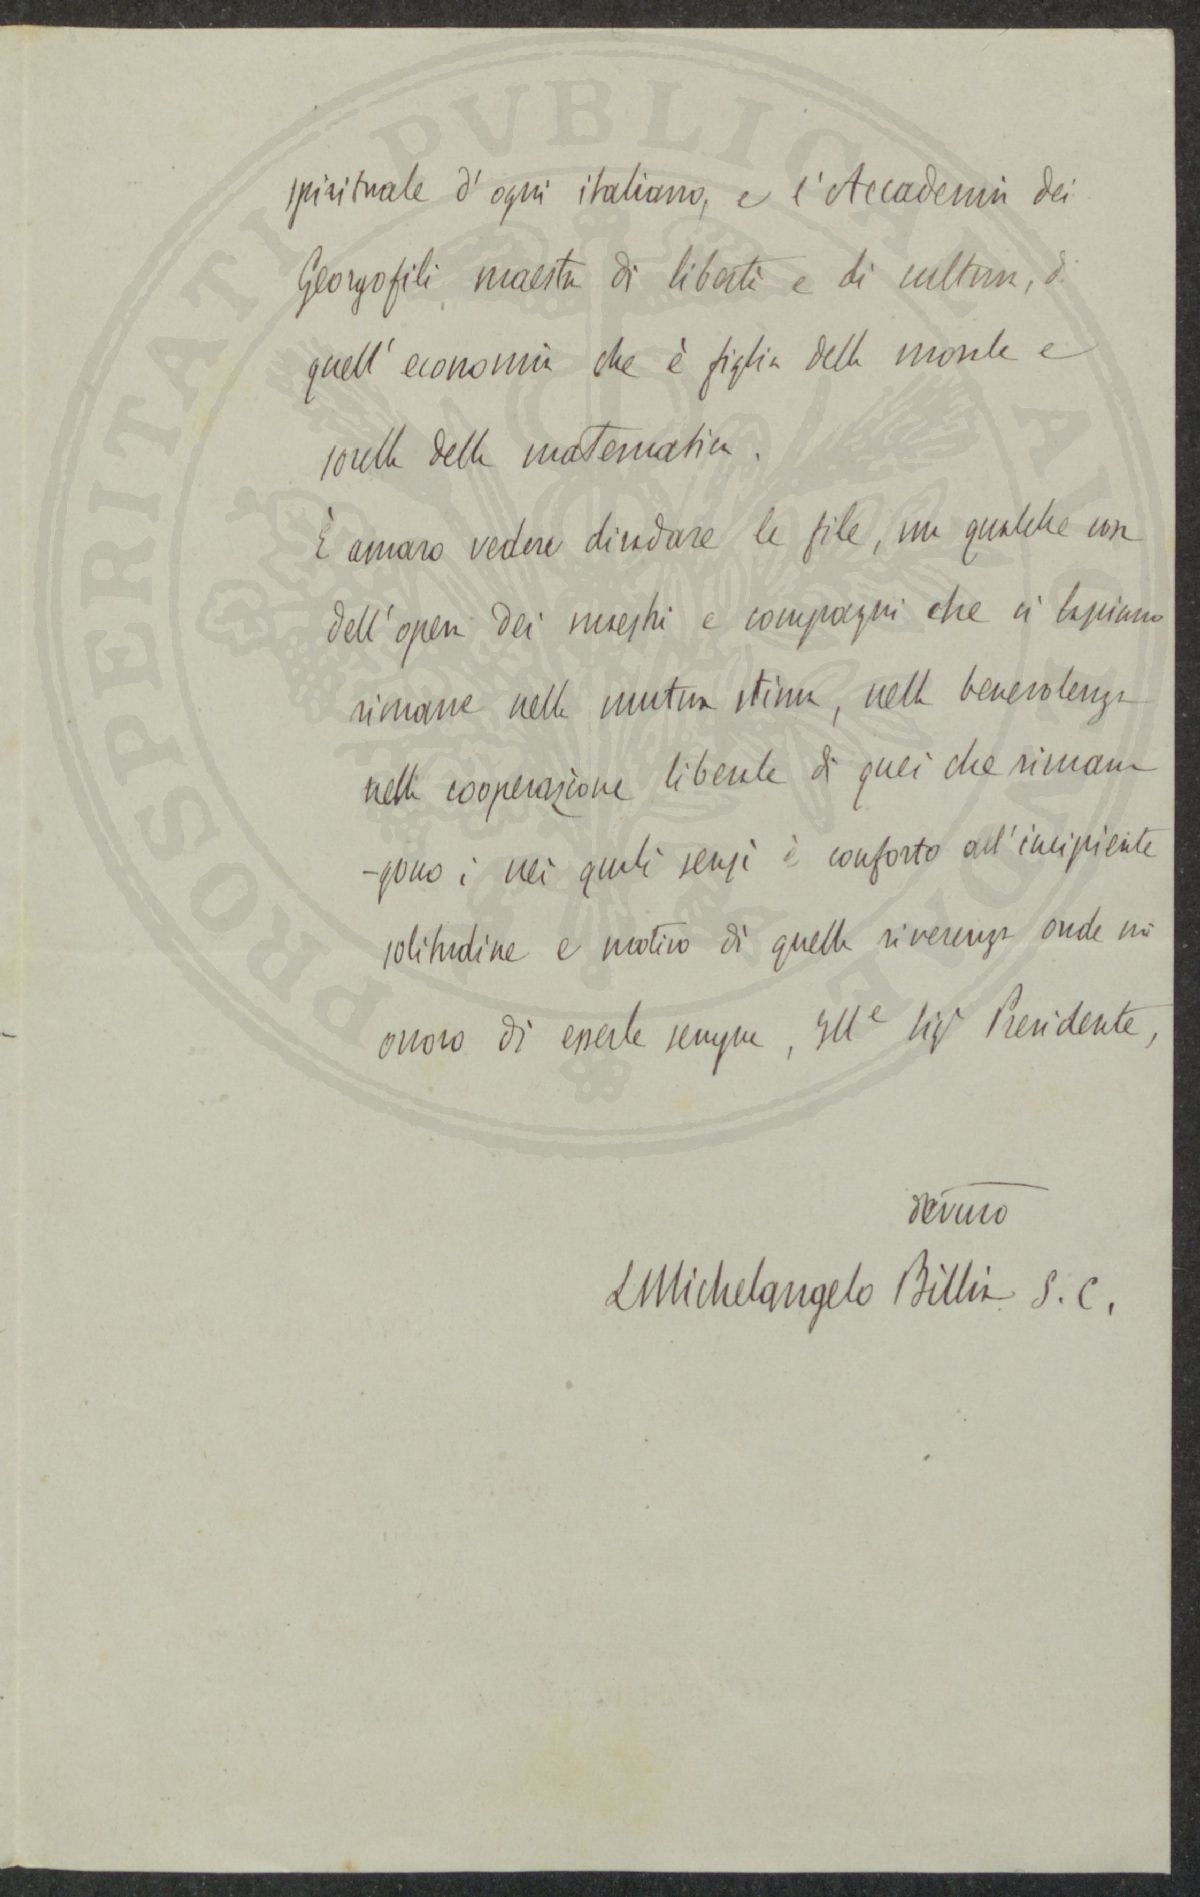 PROSPERITATI PVBLICAE AVGENDAE
spirituale d'ogni italiano, e l'Accademia dei
Georgofili maestra di libertà e di cultura, di
quell'economia che è figlia della morale e
sorella della matematica.
È amaro vedere diradare le file, ma qualche cosa
dell'opera dei maestri e compagni che ci lasciano
rimane nella mutua stima, nella benevolenza
nella cooperazione liberale di quei che riman
-gono; nei quali sensi è conforto all'incipiente
solitudine e motivo di quella riverenza onde mi
onoro di esserle sempre, Ille Sigr Presidente,
devmo
LMichelangelo Billia S. C.